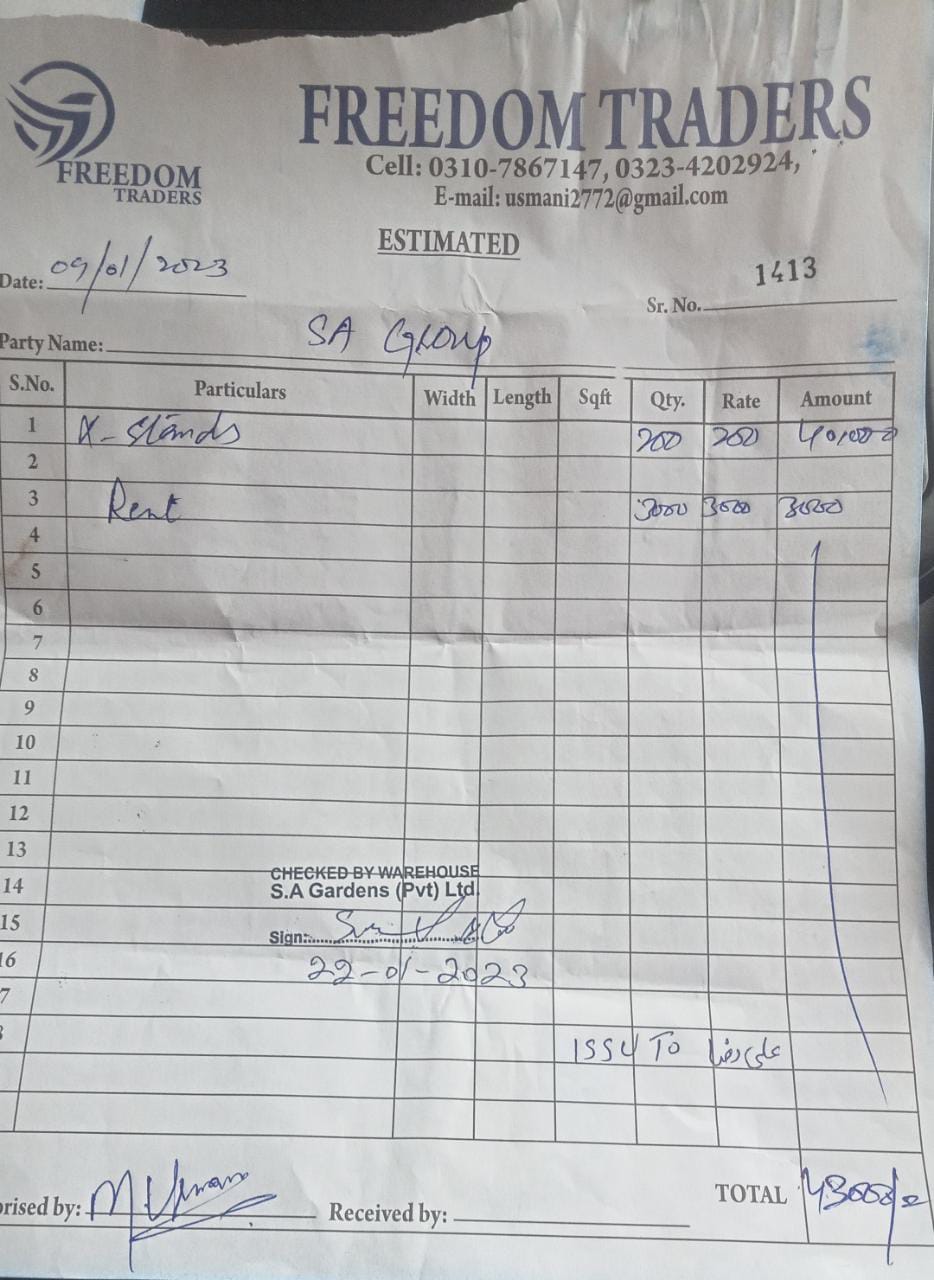 FREEDOM
TRADERS
FREEDOM TRADERS
Cell: 0310-7867147, 0323-4202924,
E-mail: usmani2772@gmail.com
ESTIMATED
Date: 09/01/2023
Sr. No. 1413
Party Name: SA Group
S.No. Particulars Width Length Sqft Qty. Rate Amount
1 X-Stands 200 200 40,000
2
3 Rent 3000 3000 3000
4
5
6
7
8
9
10
11
12
13
CHECKED BY WAREHOUSE
14 S.A Gardens (Pvt) Ltd.
15 Sign:
16 22-01-2023
7
ISSU To علی رضا
TOTAL 43000/=
rised by: M Usman Received by: